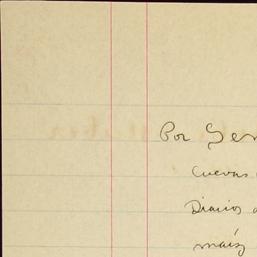 Por Ger
Cuevas
Diarios a
maíz